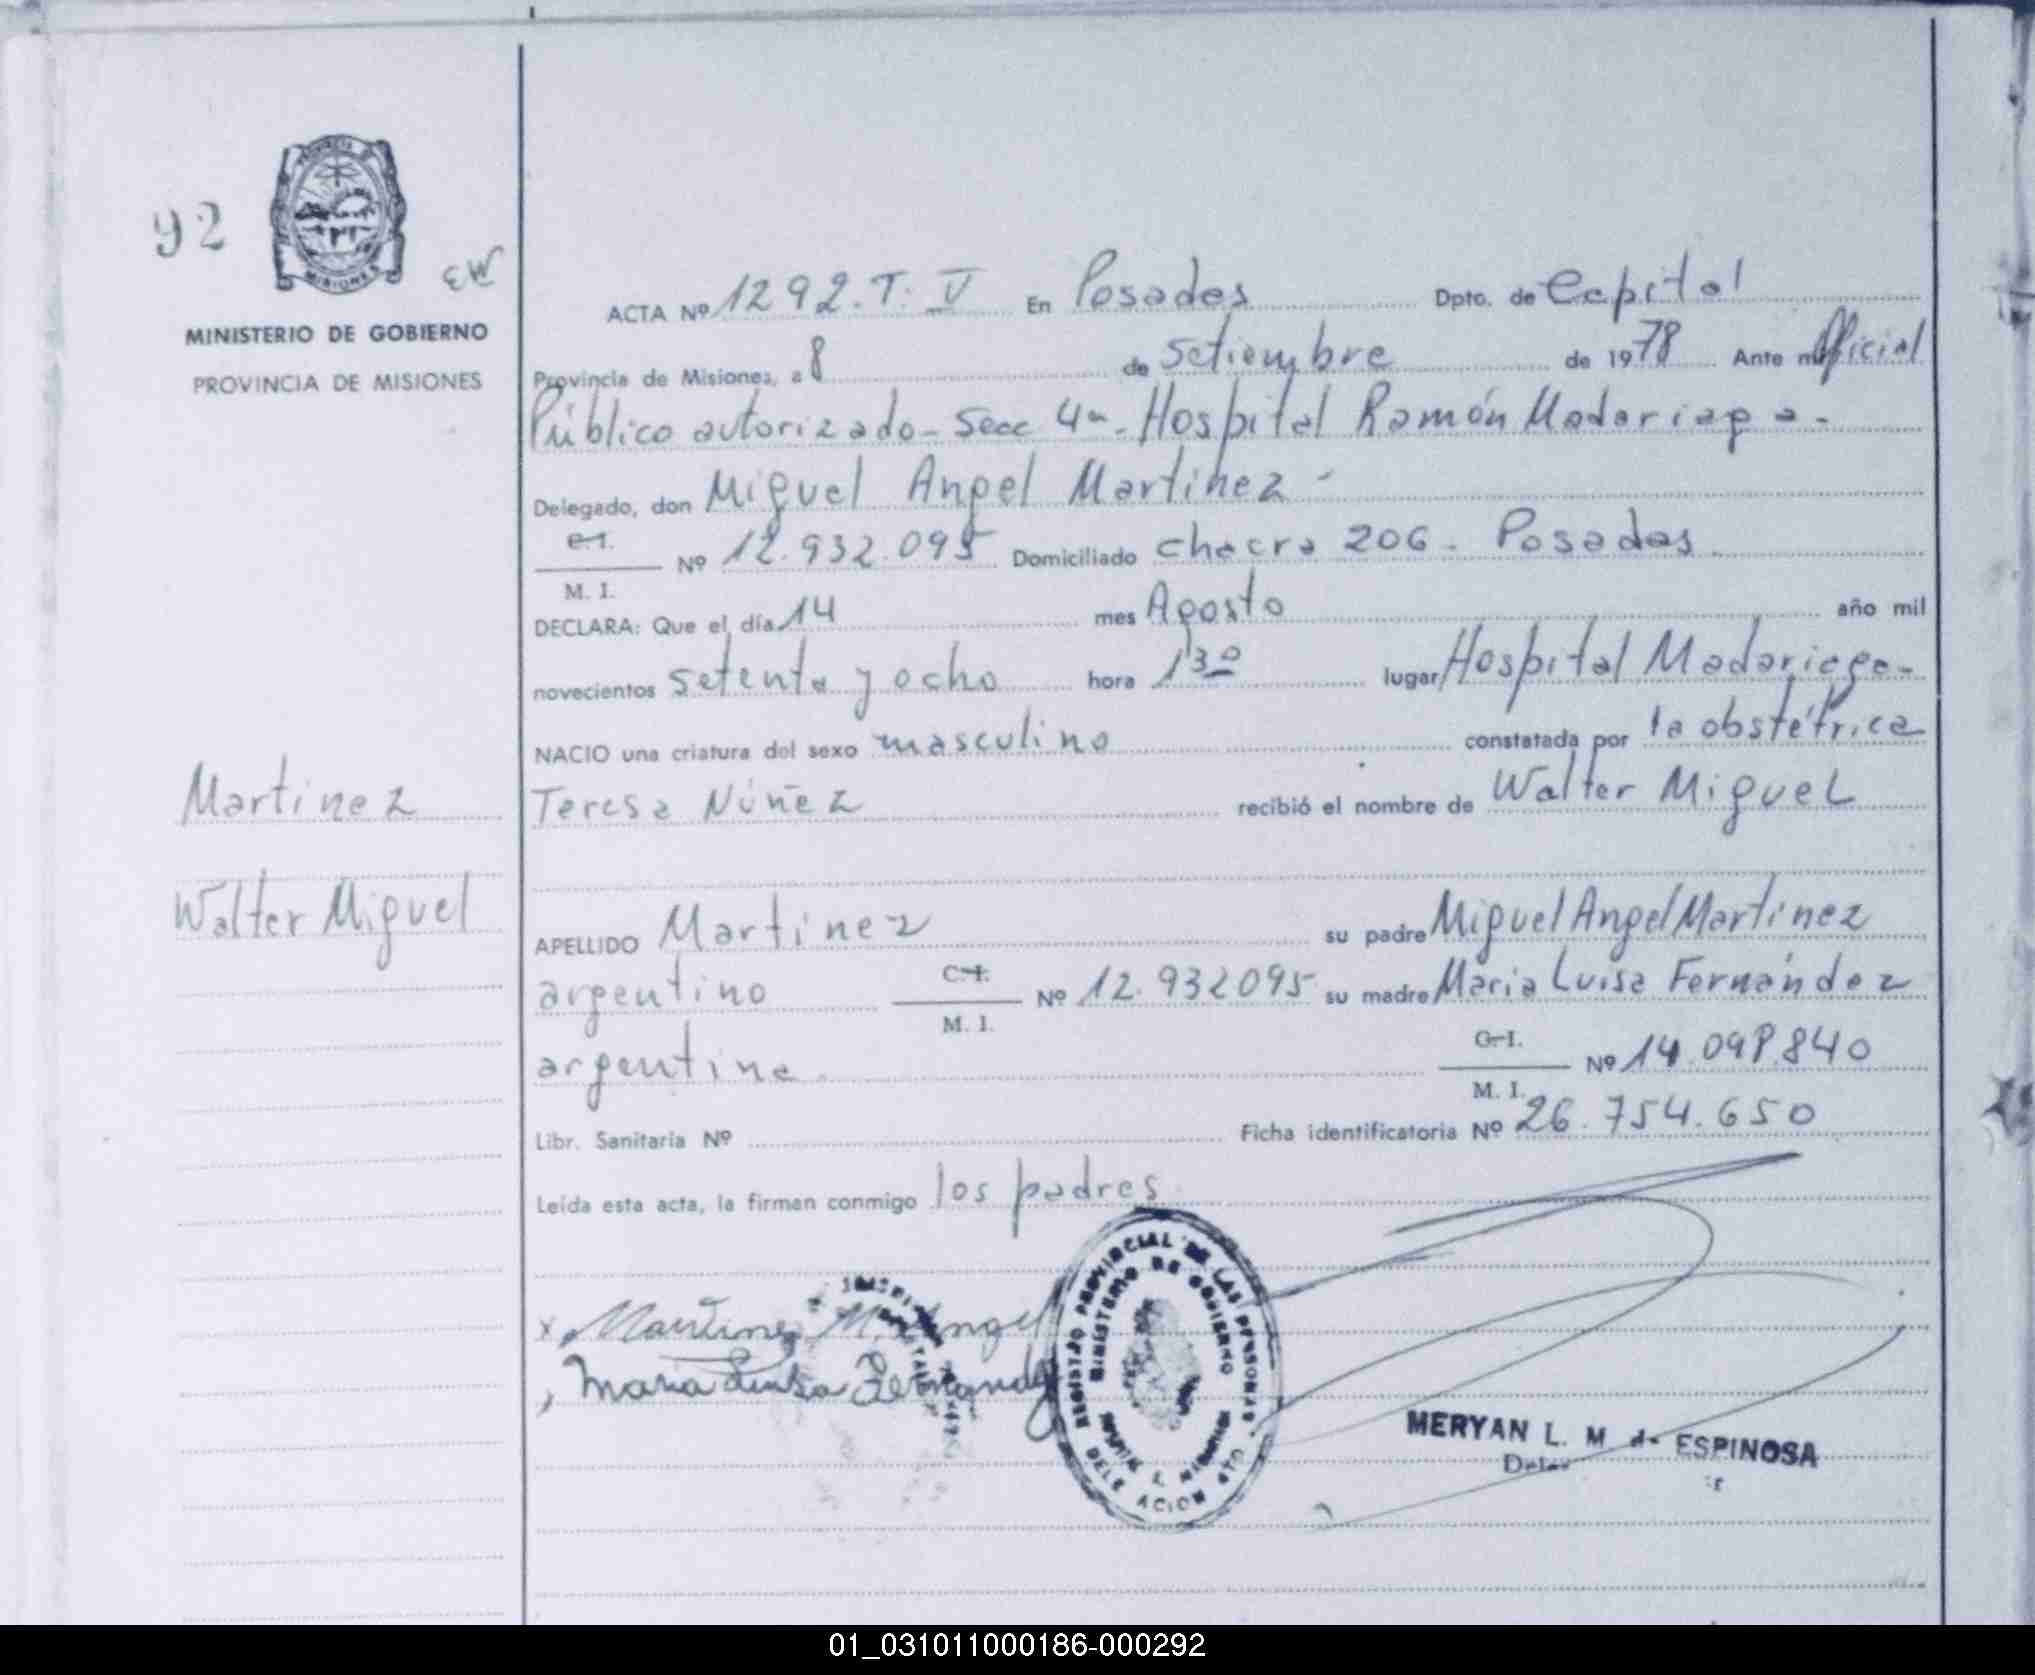 92
PROVINCIA DE
MISIONES
EW
MINISTERIO DE GOBIERNO
PROVINCIA DE MISIONES
ACTA Nº 1292. T. V En Posadas Dpto. de Capital
Provincia de Misiones, a 8 de Setiembre de 1978 Ante mi Oficial
Público autorizado - Secc 4a - Hospital Ramón Madariaga -
Delegado, don Miguel Angel Martinez -
C. I.
Nº 12.932.095 Domiciliado chacra 206 - Posadas
M. I.
DECLARA: Que el día 14 mes Agosto año mil
novecientos setenta y ocho hora 1 30 lugar Hospital Madariaga -
NACIO una criatura del sexo masculino constatada por la obstétrica
Teresa Núñez recibió el nombre de Walter Miguel
Martinez
Walter Miguel
APELLIDO Martinez su padre Miguel Angel Martinez
argentino C. I. Nº 12.932095 su madre María Luisa Fernández
M. I.
argentina C. I. Nº 14.098.840
M. I.
Libr. Sanitaria Nº Ficha identificatoria Nº 26.754.650
Leída esta acta, la firman conmigo los padres
x Martinez M. Angel
Maria Luisa Fernandez
REGISTRO PROVINCIAL DE LAS PERSONAS
MINISTERIO DE GOBIERNO
MERYAN L. M de ESPINOSA
01_031011000186-000292